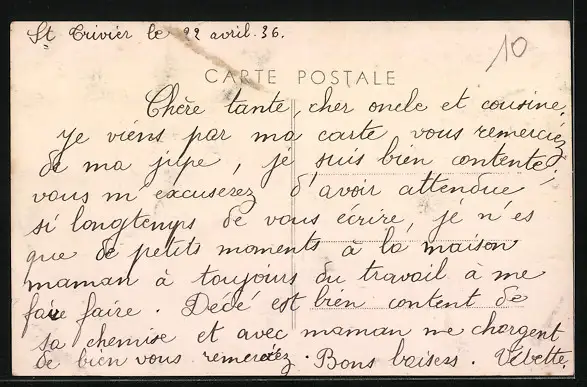 St Trivier le 22 avril. 36.
10
CARTE POSTALE
Chère tante, cher oncle et cousine.
Je viens par ma carte vous remerciéz
de ma jupe, je suis bien contente.
vous m'excuserez d'avoir attendue
si longtemps de vous écrire, je n'es
que de petits moments à la maison
maman à toujours du travail à me
faire faire. Dédé est bien content de
sa chemise et avec maman me chargent
de bien vous remerciez. Bons baisers. Vévette.